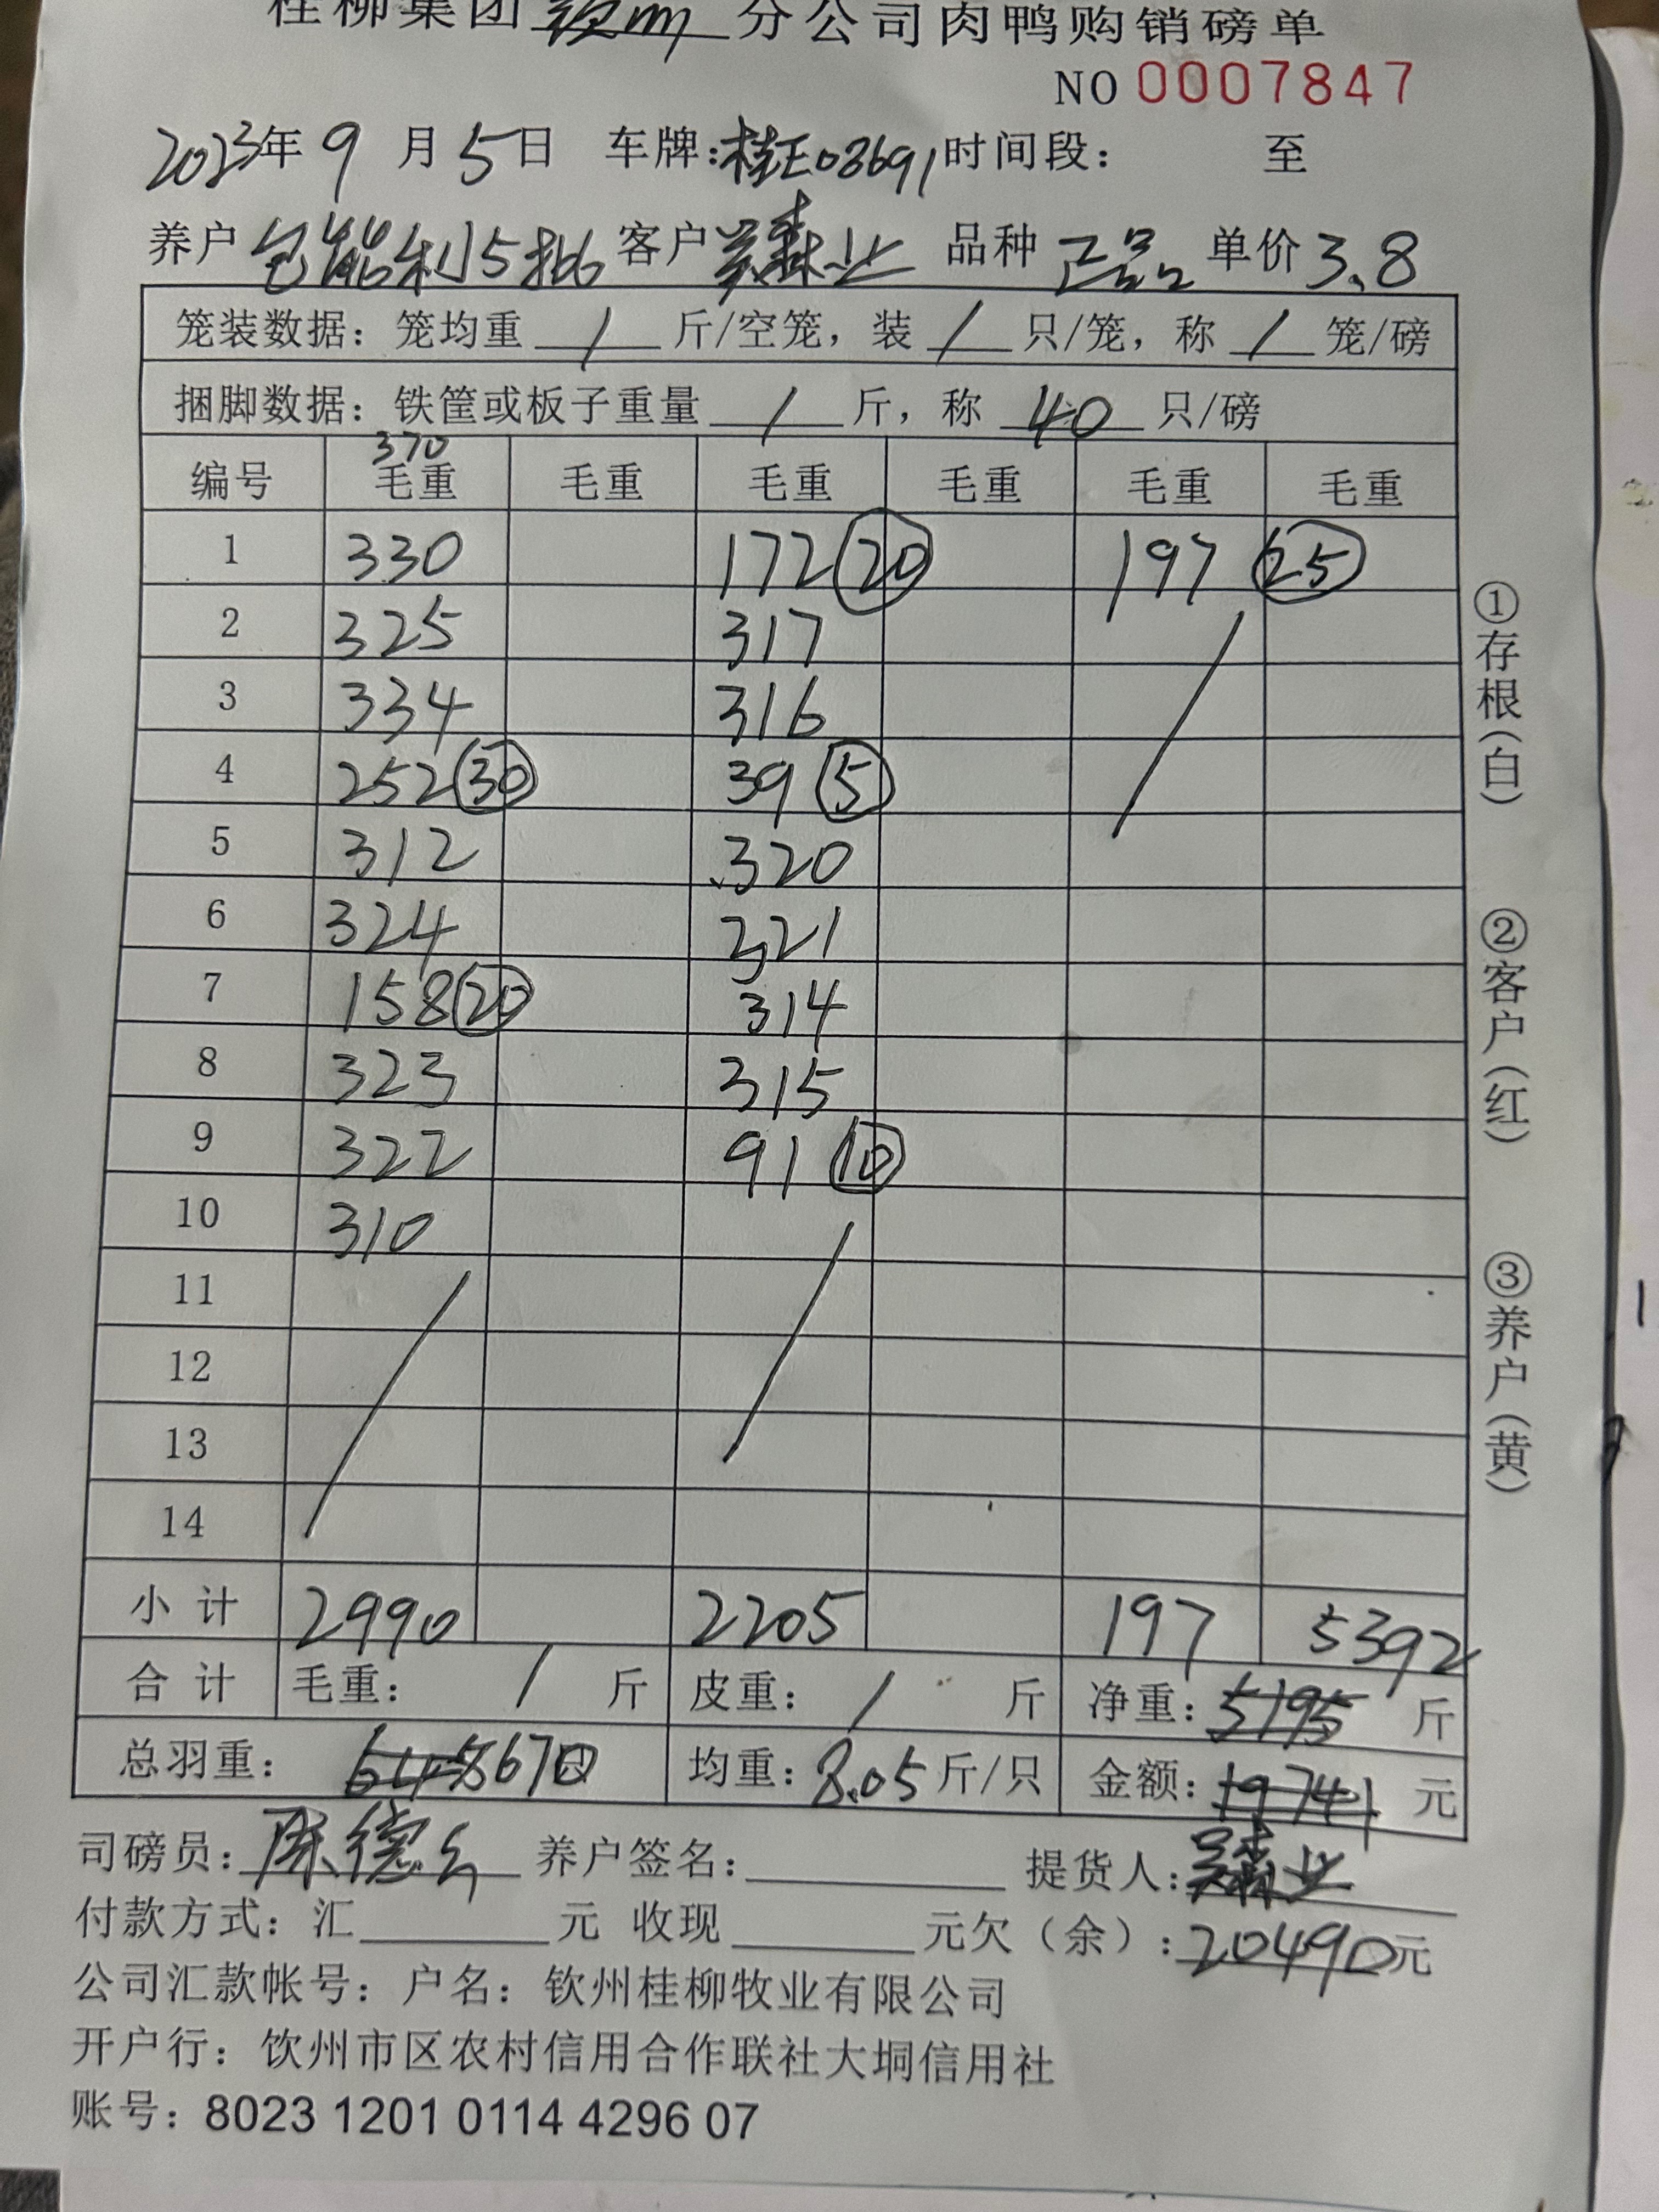 桂柳集团钦州分公司肉鸭购销磅单
NO 0007847
2023年 9 月 5 日 车牌:桂E03691 时间段: 至
养户 包能利5批 客户 吴森业 品种 正品 单价 3.8
笼装数据: 笼均重 / 斤/空笼, 装 / 只/笼, 称 / 笼/磅
捆脚数据: 铁筐或板子重量 / 斤, 称 40 只/磅
370
编号 毛重 毛重 毛重 毛重 毛重 毛重
1 330 172 20 197 25
2 325 317
3 334 316
4 252 30 39 5
5 312 320
6 324 321
7 158 20 314
8 323 315
9 322 91 10
10 310
11
12
13
14
小计 2990 2205 197 5392
合计 毛重: / 斤 皮重: / 斤 净重: 5195 斤
总羽重: 645 670 均重: 8.05 斤/只 金额: 19741 元
司磅员: 养户签名: 提货人: 吴森业
付款方式: 汇 元 收现 元欠(余): 20490元
公司汇款帐号: 户名: 钦州桂柳牧业有限公司
开户行: 钦州市区农村信用合作联社大垌信用社
账号: 8023 1201 0114 4296 07
①存根(白)
②客户(红)
③养户(黄)